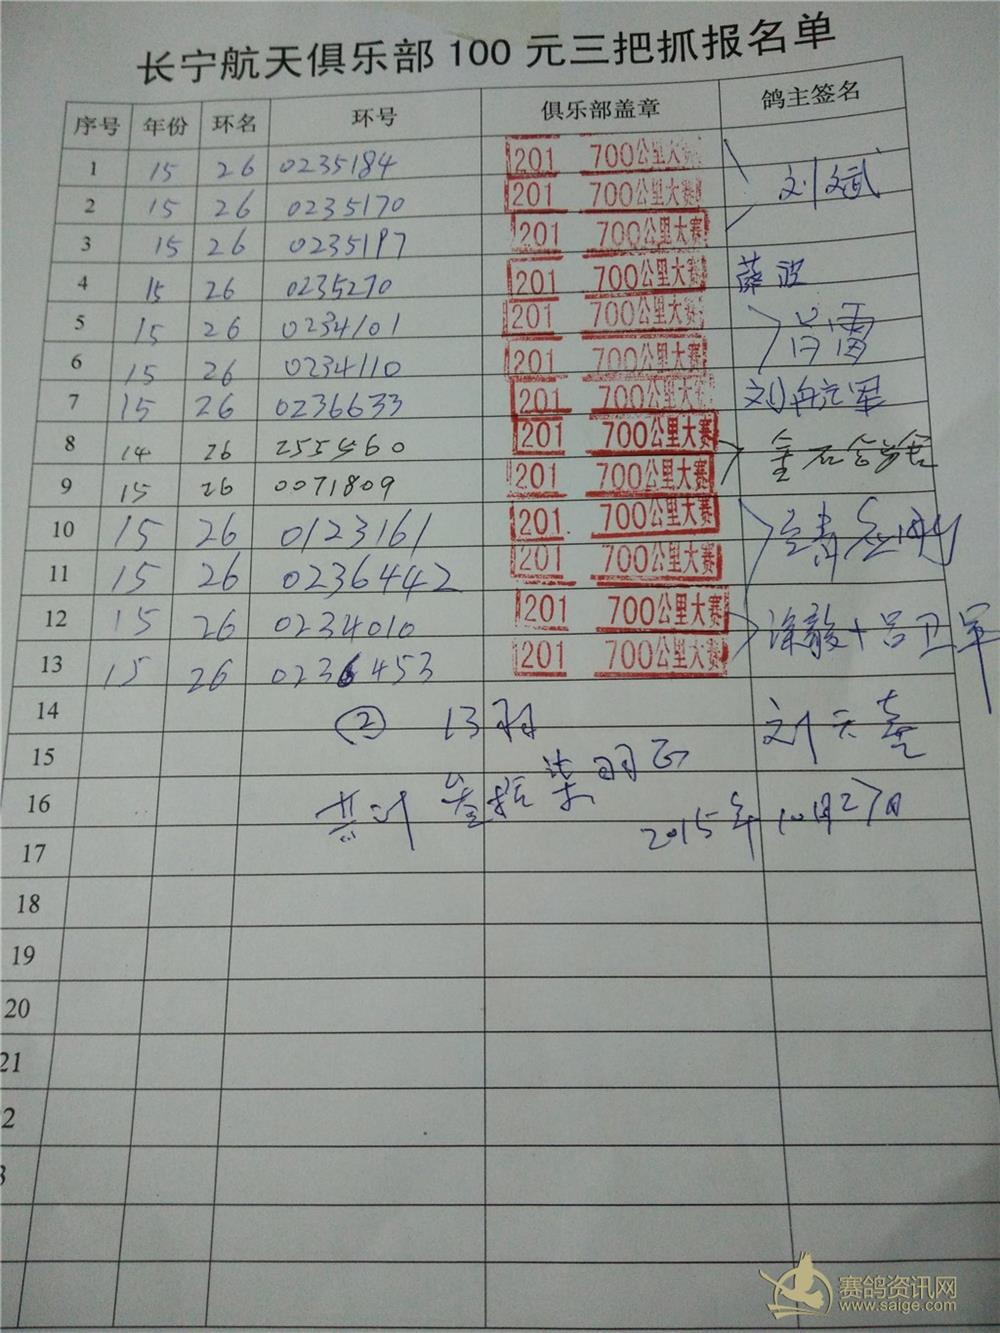 长宁航天俱乐部 100 元三把抓报名单
序号 年份 环名 环号 俱乐部盖章 鸽主签名
1 15 26 0235184 201 700公里大赛 刘文斌
2 15 26 0235170 201 700公里大赛
3 15 26 0235197 201 700公里大赛
4 15 26 0235270 201 700公里大赛 薛波
5 15 26 0234101 201 700公里大赛 吕雷
6 15 26 0234110 201 700公里大赛
7 15 26 0236633 201 700公里大赛 刘冉元军
8 14 26 255560 201 700公里大赛 金石鸽舍
9 15 26 0071809 201 700公里大赛
10 15 26 0123161 201 700公里大赛
11 15 26 0236442 201 700公里大赛
12 15 26 0234010 201 700公里大赛 涂毅+吕卫军
13 15 26 0236453 201 700公里大赛
14 ② 13羽 刘天喜
15
16 共计叁拾柒羽正 2015年10月27日
17
18
19
20
21
2
3
赛鸽资讯网
www.saige.com